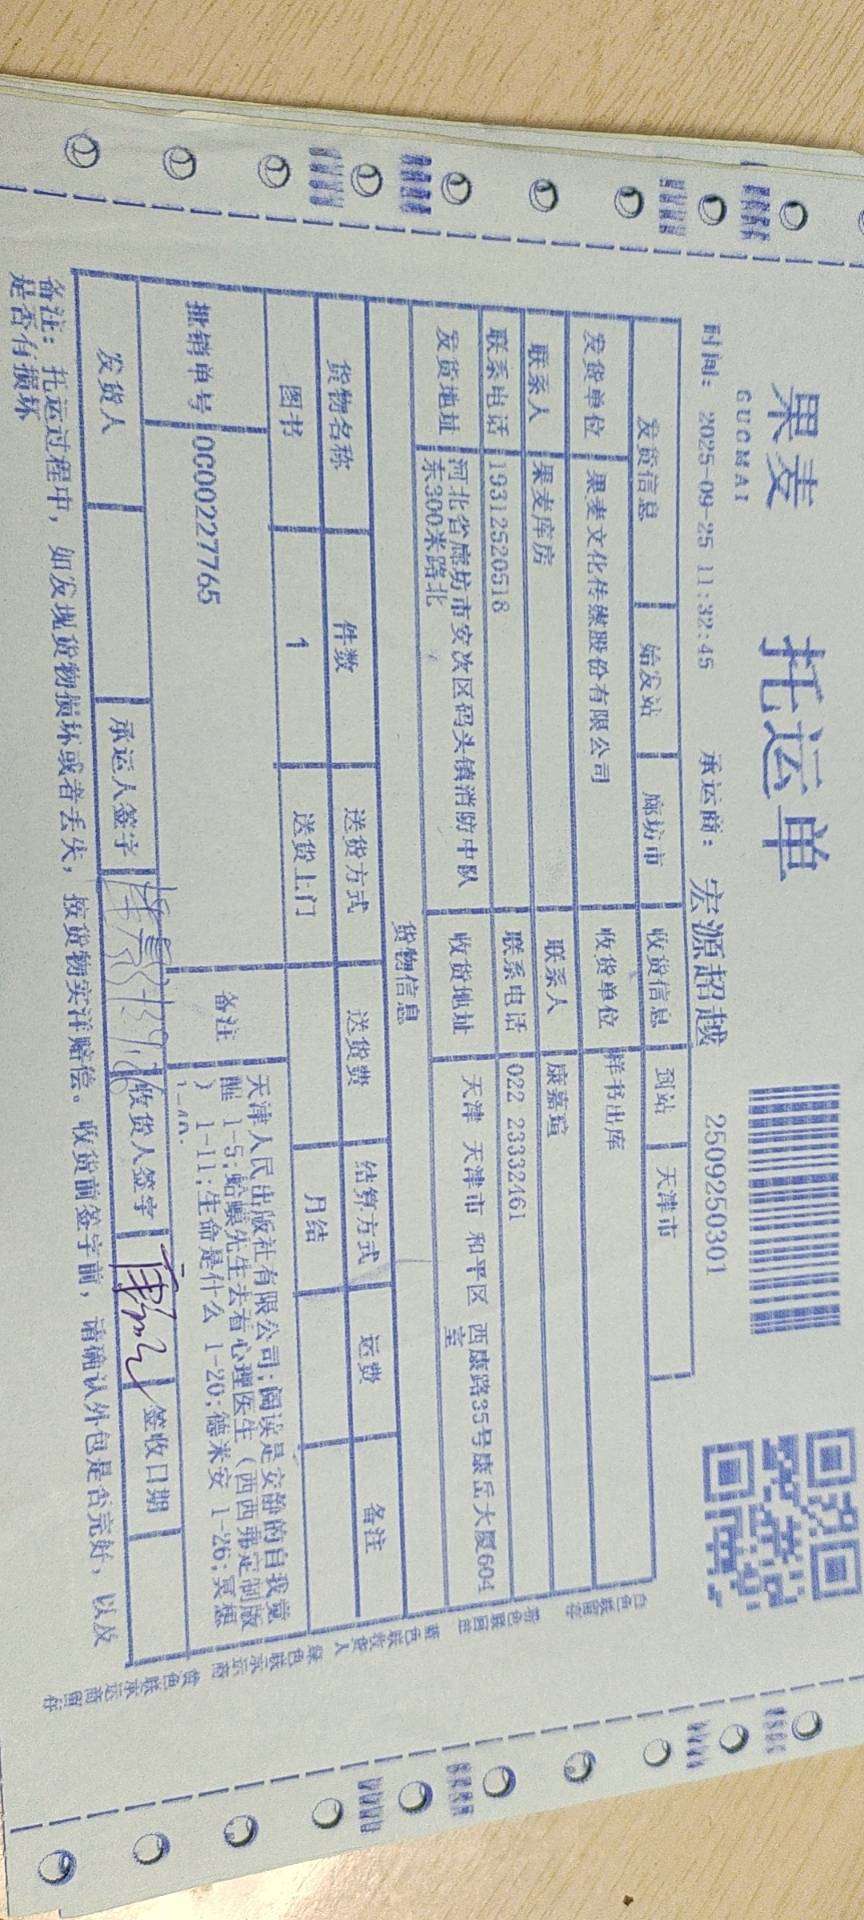 果麦
GUOMAI
托运单
时间: 2025-09-25 11:32:45
承运商: 宏源超越
2509250301
发货信息 始发站 廊坊市 收货信息 到站 天津市
发货单位 果麦文化传媒股份有限公司 收货单位 样书出库
联系人 果麦库房 联系人 康嘉瑄
联系电话 19312520518 联系电话 022 23332461
发货地址 河北省廊坊市安次区码头镇消防中队
东300米路北
收货地址 天津 天津市 和平区 西康路35号康岳大厦604
室
货物信息
货物名称 件数 送货方式 送货费 结算方式 运费 备注
图书 1 送货上门 月结
批销单号 0C00227765
备注
天津人民出版社有限公司;阅读是安静的自我觉
醒 1-5;蛤蟆先生去看心理医生(西西弗定制版
) 1-11;生命是什么 1-20;德米安 1-26;冥想
1-40.
发货人 承运人签字 收货人签字 签收日期
备注: 托运过程中, 如发现货物损坏或者丢失, 按货物实洋赔偿。收货前签字前, 请确认外包是否完好, 以及
是否有损坏
白色联留存 粉色联回单 蓝色联收货人 绿色联承运商 黄色联承运商留存